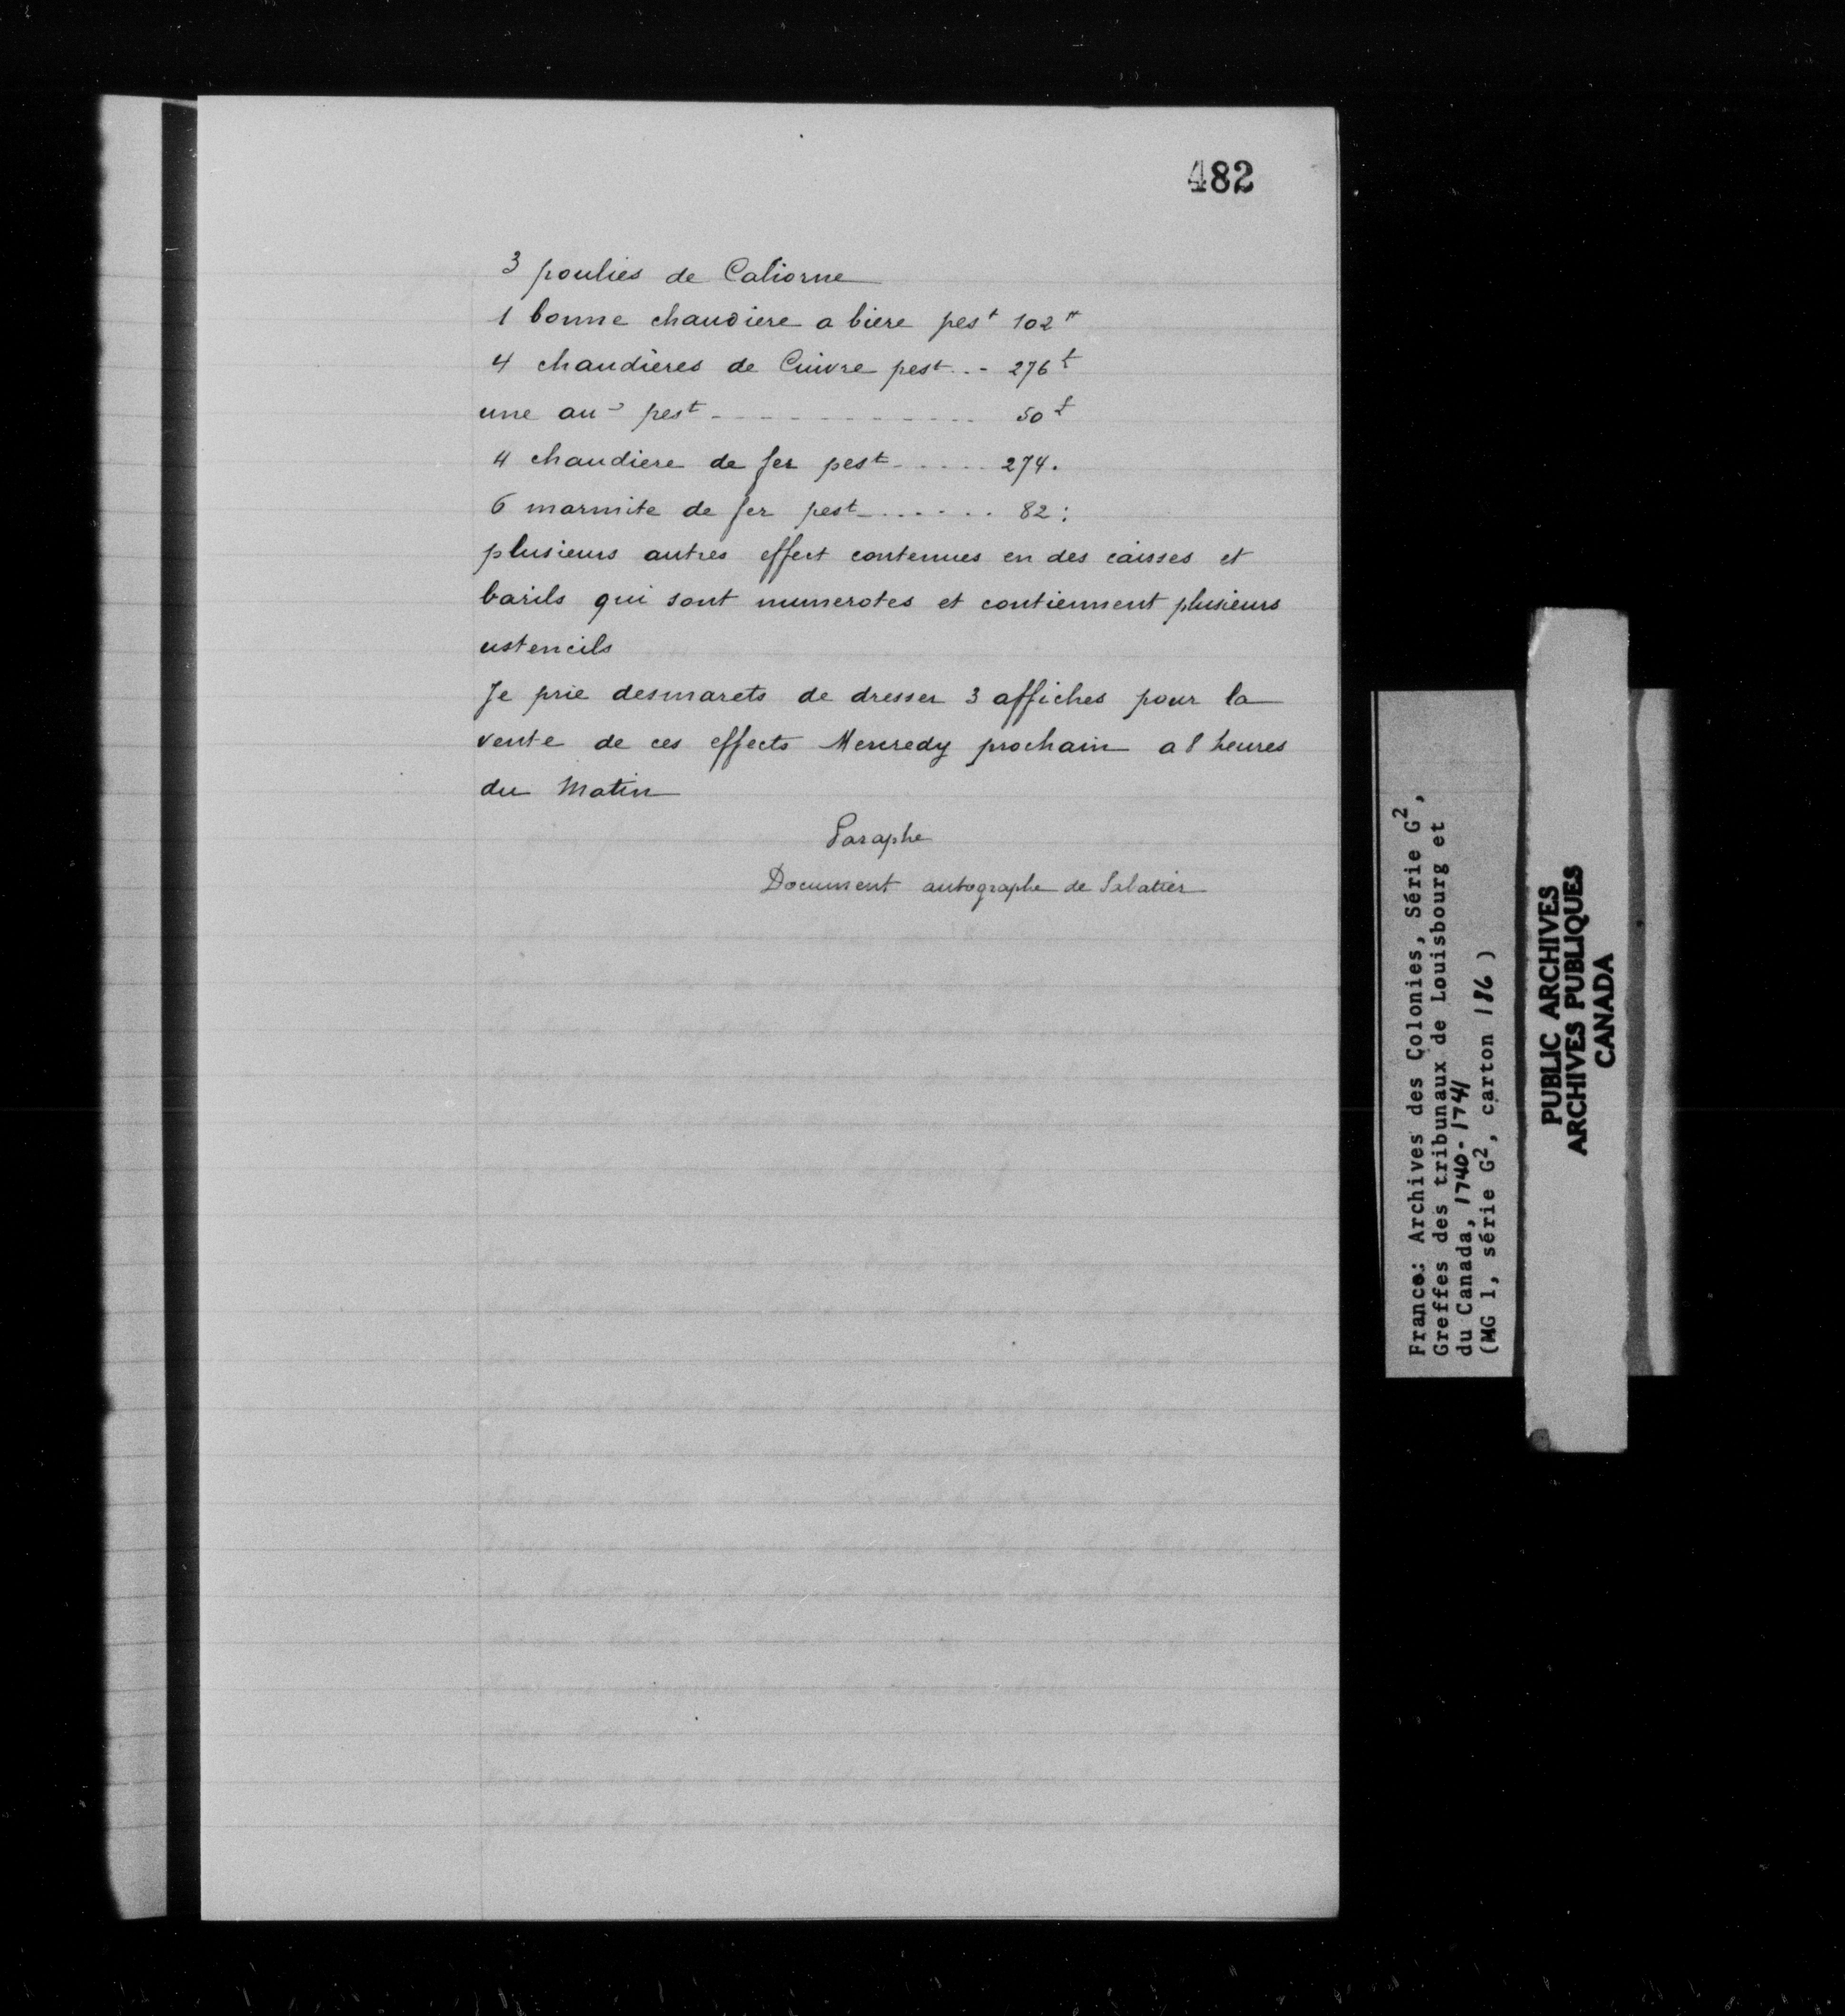 482
3 poulies de Caliorne
1 bonne chaudiere a biere pest 102 ₶
4 chaudieres de Cuivre pest .. - 276 ₶
une au pest - - - - - - - - - - - - 50 ₶
4 chaudiere de fer pest - . . . . . 274.
6 marmite de fer pest - . . . - . . 82 :
plusieurs autres effect contenues en des caisses et
barils qui sont numerotes et contiennent plusieurs
ustencils
Je prie desmarets de dresser 3 affiches pour la
vente de ces effects Mercredy prochain a 8 heures
du Matin
Paraphe
Document autographe de Sabatier
France: Archives des Colonies, Série G²,
Greffes des tribunaux de Louisbourg et
du Canada, 1740-1741
(MG 1, série G², carton 186 )
PUBLIC ARCHIVES
ARCHIVES PUBLIQUES
CANADA